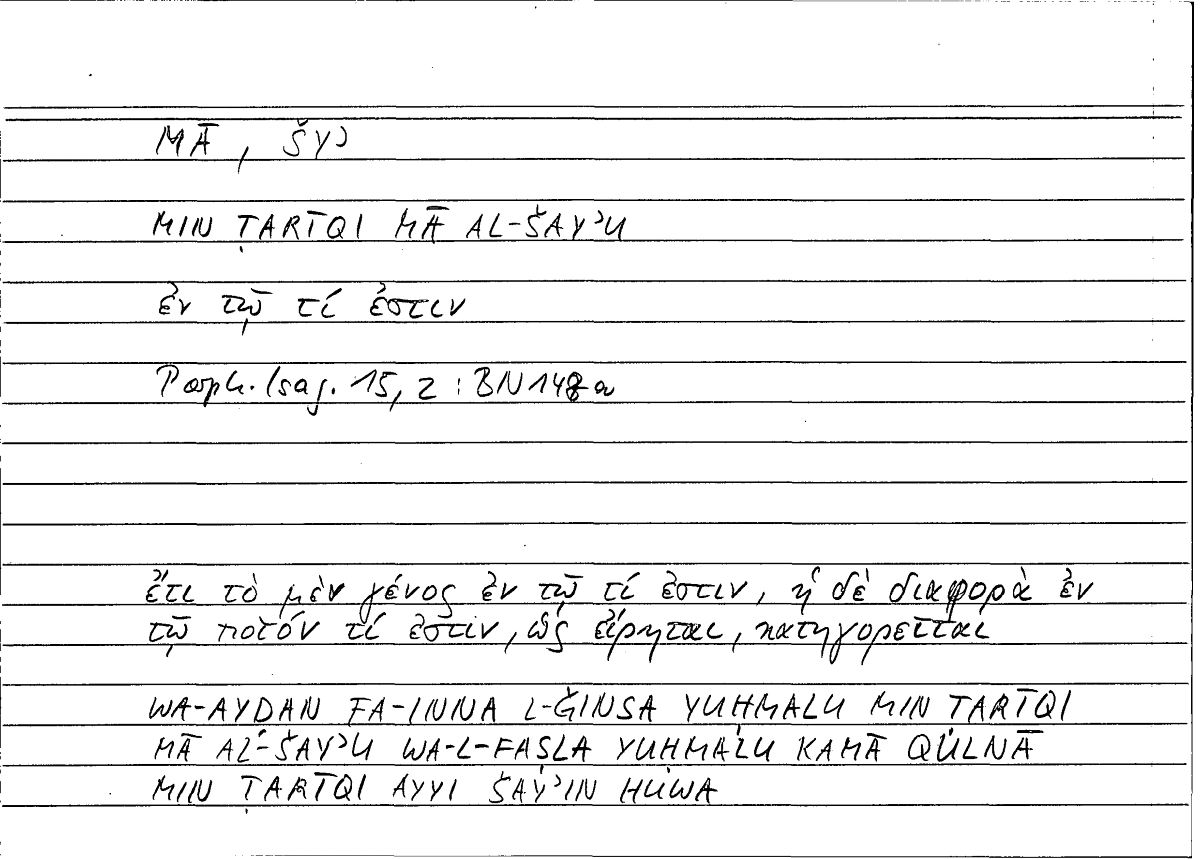 MĀ, ŠYʾ
MIN ṬARĪQI MĀ AL-ŠAYʾU
ἐν τῷ τί ἐστιν
Porph. Isag. 15, 2 : BN 148a
ἔτι τὸ μὲν γένος ἐν τῷ τί ἐστιν, ἡ δὲ διαφορὰ ἐν
τῷ ποῖόν τί ἐστιν, ὡς εἴρηται, κατηγορεῖται
WA-AYḌAN FA-INNA L-ǦINSA YUḤMALU MIN ṬARĪQI
MĀ AL-ŠAYʾU WA-L-FAṢLA YUḤMALU KAMĀ QULNĀ
MIN ṬARĪQI AYYI ŠAYʾIN HUWA